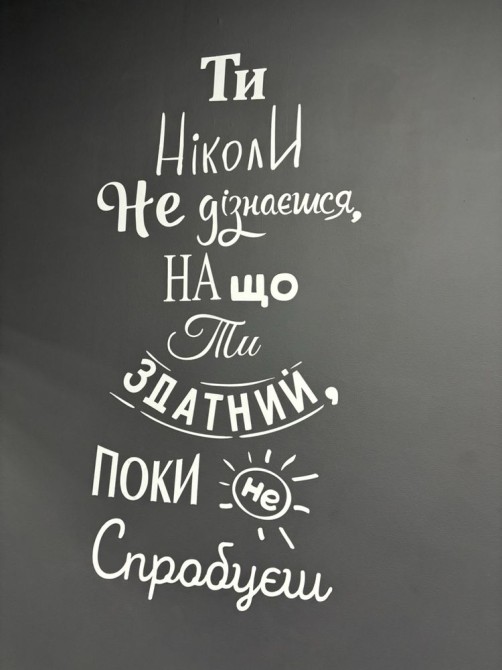 Ти
НіколИ
Не дізнаєшся,
НА що
Ти
ЗДАТНИЙ,
ПОКИ не
Спробуєш